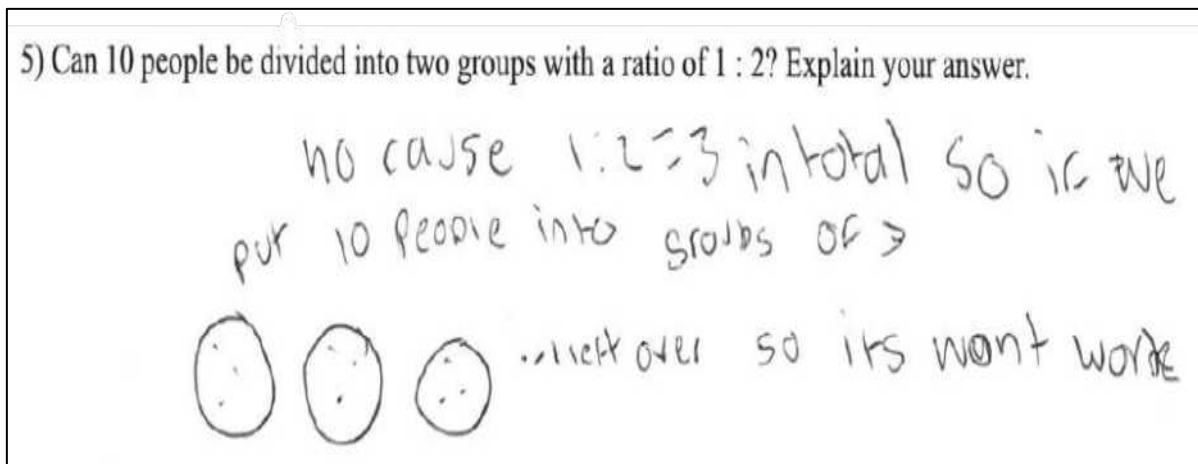 5) Can 10 people be divided into two groups with a ratio of 1 : 2? Explain your answer.
no cause 1:2=3 in total so if we
put 10 people into groups of 3
left over so its wont work